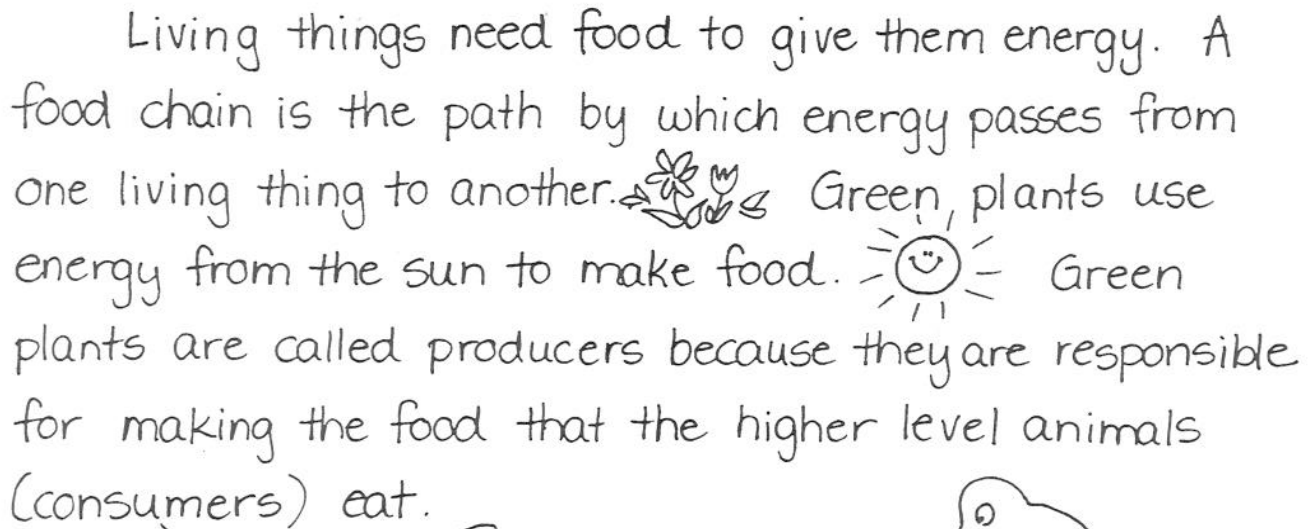 Living things need food to give them energy. A
food chain is the path by which energy passes from
one living thing to another. Green plants use
energy from the sun to make food. Green
plants are called producers because they are responsible
for making the food that the higher level animals
(consumers) eat.